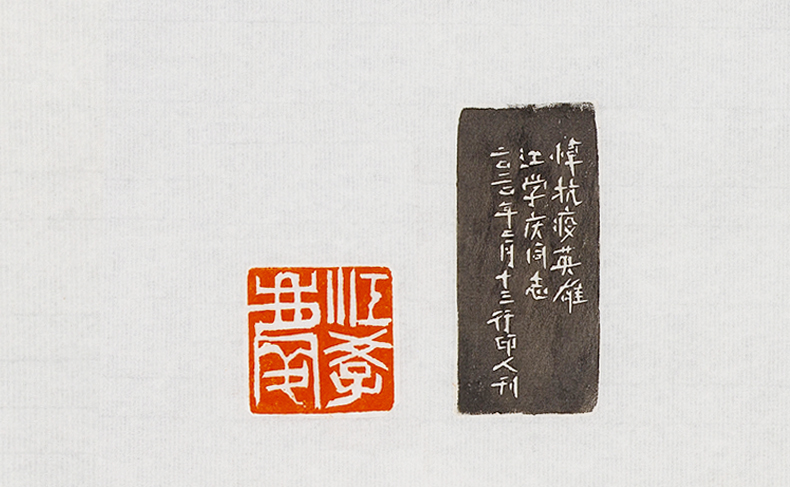 江學
慶
悼抗疫英雄
江学庆同志
二〇二〇年三月十三行印人刊